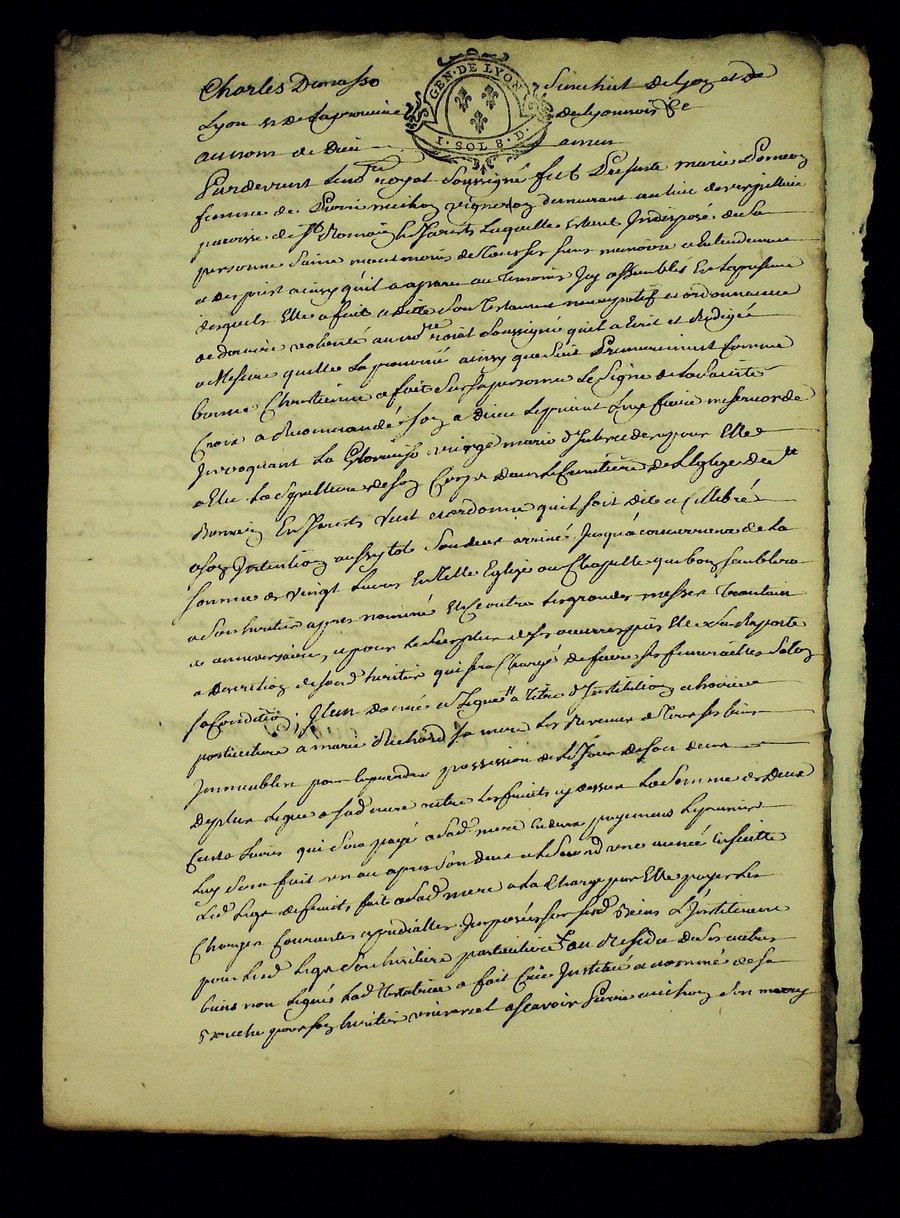 Charles Demasso Senechal de Lyon et de
GEN · DE LYON
1 · SOL 8 · D ·
Lyon et de la province de Lyonnois &c
au nom de Dieu amen
Pardevant le no.re royal soussigné fut presente marie
femme de Pierre michon vigneron demeurant au lieu de
paroisse de S.t Romain laquelle estant Indisposé de sa
personne saine neantmoins de tous ses sens memoire et entendement
et desprit ainsy quil a aparu au temoins Icy assemblés
desquels Elle a fait et dicté son Testament nuncupatif et ordonnance
de derniere volonté au no.re royal soussigné quil a Ecrit et Redigée
a Mesure quelle la prononcé ainsy que suit Premierement Comme
bonne Chrestienne a fait sur sa personne le signe de la Sainte
Croix a Recommandé son a Dieu le priant luy faire misericorde
Invoquant la Glorieuse vierge marie d'Interceder pour Elle
a Elu la sepulture de son Corps dans le Cimetiere de l'Eglise de S.t
Romain veut et ordonne quil soit dite et Cellebré
a son Intention aussytot son deces arrivé Jusqu'a concurrence de la
somme de vingt livres En telle Eglise ou Chapelle que bon semblera
a son heritier apres nommé et ce outre les grandes messes
et anniversaire, et pour le surplus de ses oeuvres pies Elle s'en raporte
a discretion de sond. heritier qui sera Chargé de faire ses funerailles selon
sa Condition, Item donne et legue a Titre d'Institution et hoirie
particuliere a marie Richard sa mere les Revenus de tous ses biens
Immeubles pour la prendre possession de le Jour de son deces
de plus legue a sad. mere outre les fruits cy dessus la somme de Deux
Cents livres qui sera payé a sad. mere En deux payemens le premier
luy sera fait un an apres son deces et le second une année Ensuitte
led. legs de fruits fait a sad. mere a la Charge par Elle payer les
Charges Courantes Imposées sur sesd. biens L'Instituant
pour lesd. legs son heritiere particuliere Et au Residu de ses autres
biens non legués lad. Testatrice a fait Créé Institué et nommé de sa
bouche pour son heritier universel ascavoir Pierre michon son marry